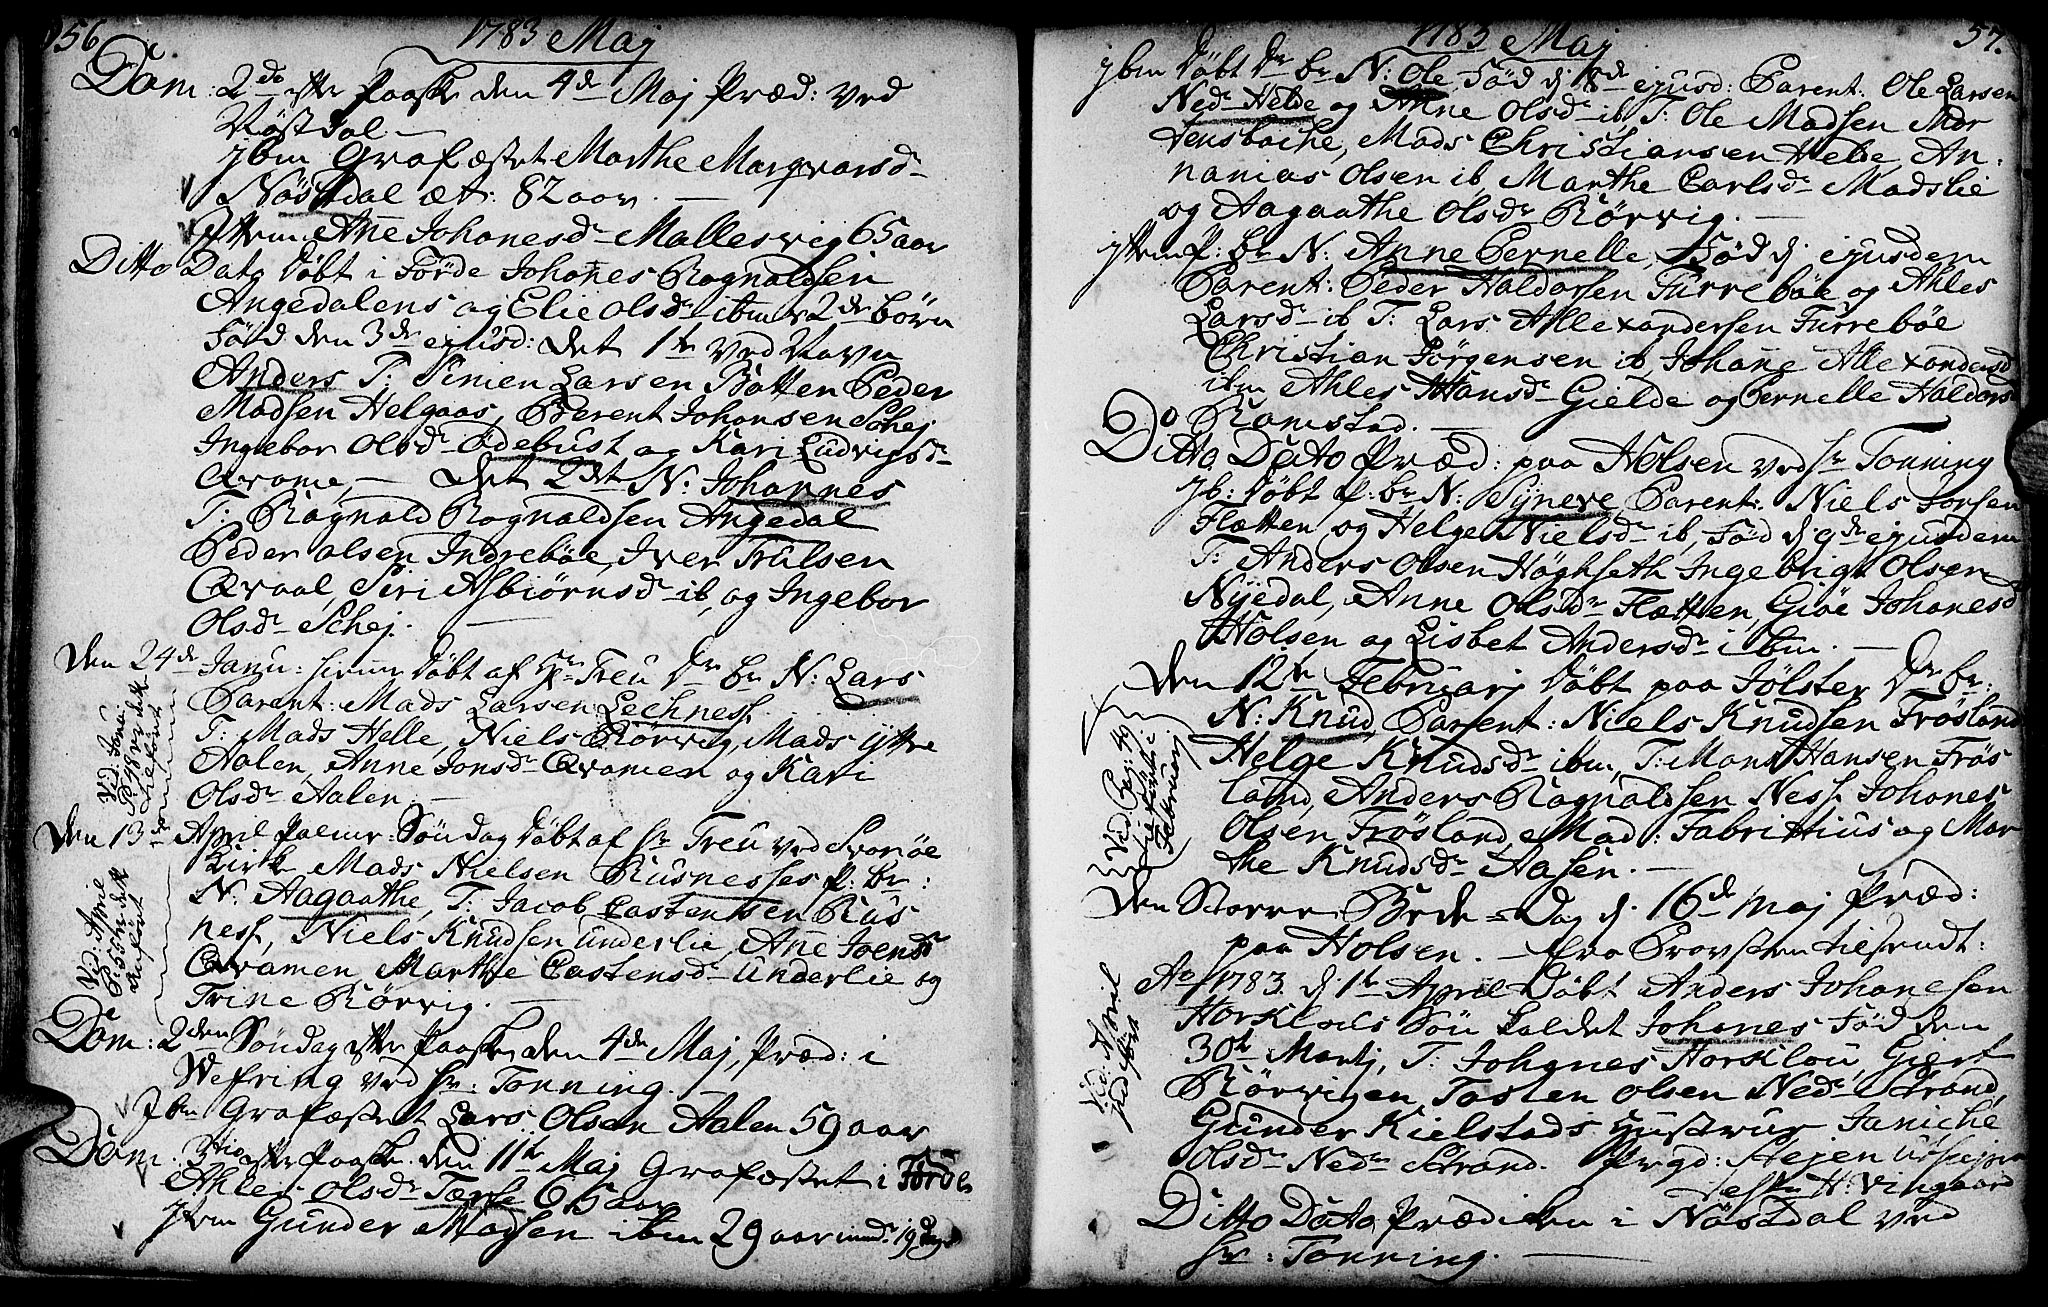 56
1783 Maj
Dom: 2de efter Paaske den 4de Maj Præd: ved
Nöstdal —
Ibm Grafæstet Marthe Margvarsd.
Nöstdal æt: 82 aar. —
Ittem Añe Johanesd. Mallesvig 65 aar
Ditto Dato Döbt i Förde Johañes Rognaldsen
Angedalens og Elie Olsdr ibm 2de börn
Född den 3de ejusd: det 1te ved Navn
Anders T: Simen Larsen Botten Peder
Madsen Helgaas, Berent Johansen Schej
Ingebor Olsdr Ödebust og Kari Ludvigsdr
Qvame, — det 2det N: Johannes
T: Rognald Rognaldsen Angedal
Peder Olsen Indrebøe, Iver Trulsen
Qvaal, Siri Asbiörnsdr ib, og Ingebor
Olsdr Schej. —
Den 24de Janu: döbt af Hr Treu Dr br N: Lars
Parent: Mads Larsen Lechness
T: Mads Helle, Niels Rörvig, Mads ÿtre
Aalen, Anne Jonsdr Qvamen og Kari
Olsdr Aalen. —
Vid: Janu:
P: 48
Den 13de April Palme: Söndag döbt af Hr Treu ved Svanöe
Kirke Mads Nielsen Rusnesses p: br:
N: Aagaathe, T: Jacob Castensen Rus
ness, Niels Knudsen Underlie, Añe Joensd
Qvamen, Marthe Castensdr Underlie og
Trine Rörvig. —
Vid: April
P: 55
anfört
Dom: 2den Söndag efter Paaske, den 4de Maj, Præd: i
Wefring ved Hr: Tonning. —
Ibm Grafæstet Lars Olsen Aalen 59 aar
Dom: 3tio efter Paaske den 11te Maj Grafæstet i Förde
Ahles Olsdr Tærse 65 aar
Item Gunder Madsen ibm 29 aar mind. 19 dage
57.
1783 Maj
Ibm Döbt Dr br N: Ole, Föd d 8de ejusd: Parent: Ole Larsen
Nedr Helde og Anne Olsdr ib T: Ole Madsen Mor
densbache, Mads Christiansen Helde, An:
nanias Olsen ib, Marthe Carlsdr Madslie
og Aagaathe Olsdr Rörvig. —
ittem p: br N: Anne Pernelle, Föd d ejusdem
Parent: Peder Haldorsen Furrebøe og Ahles
Larsdr ib T: Lars Allexandersen Furrebøe
Christian Jörgensen ib Johañe Allexandersd
ibm Ahles Hansdr Gielde og Pernelle Haldorsd
Ramstad. —
Do Ditto Dato Præd: paa Holsen ved Hr Tonning
Ib: Döbt p: br N: Syneve, Parent: Niels Jorsen
Flætten og Helge Nielsdr ib, Föd d 9de ejusdem
T: Anders Olsen Höghseth Ingebrigt Olsen
Nyedal, Anne Olsdr Flætten, Giöe Johanesd
Holsen og Lisbet Andersdr ibm. —
Den 12te Februarj Döbt paa Jölster Dr br:
N: Knud, Parent: Niels Knudsen Frösland
Helge Knudsdr ibm, T: Mons Hansen Frös
land, Anders Rognaldsen Ness, Johanes
Olsen Frösland, Mad: Fabrittius og Mar
the Knudsdr Aasen. —
Vid: Pag: 49
Februarj
Den Storre Bede-Dag d. 16de Maj Præd:
paa Holsen. — fra Provsten tilsendt:
Ao 1783. d. 1te April Döbt Anders Johanesen
Horklaus Sön kaldet Johanes Föd den
30te Martj, T: Johanes Horklou, Giert
Rörvigen, Tosten Olsen Nedr Strand,
Gunder Kielstads Hustrue Janiche
Olsdr Nedr Strand. Prgd: Stejen
H. Vingaard
Vid: April
Ditto Dato Prædiken i Nöstdal ved
Hr: Tonning. —